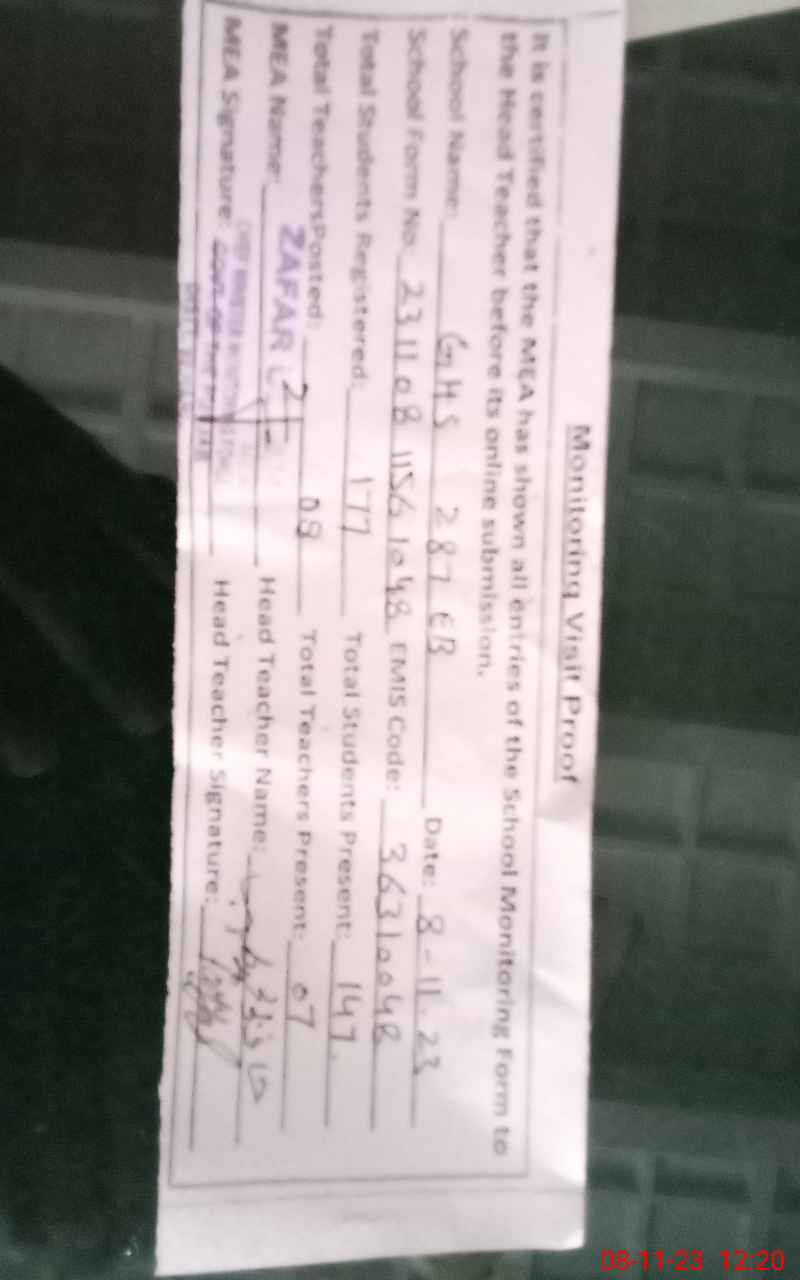 Monitoring Visit Proof
It is certified that the MEA has shown all entries of the School Monitoring Form to
the Head Teacher before its online submission.
School Name: GHS 287 EB Date: 8-11-23
School Form No: 231108 11561048 EMIS Code: 36310048
Total Students Registered: 177 Total Students Present: 147.
Total TeachersPosted: 08 Total Teachers Present: 07
MEA Name: ZAFAR Head Teacher Name:
MEA Signature: Head Teacher Signature:
08-11-23 12:20